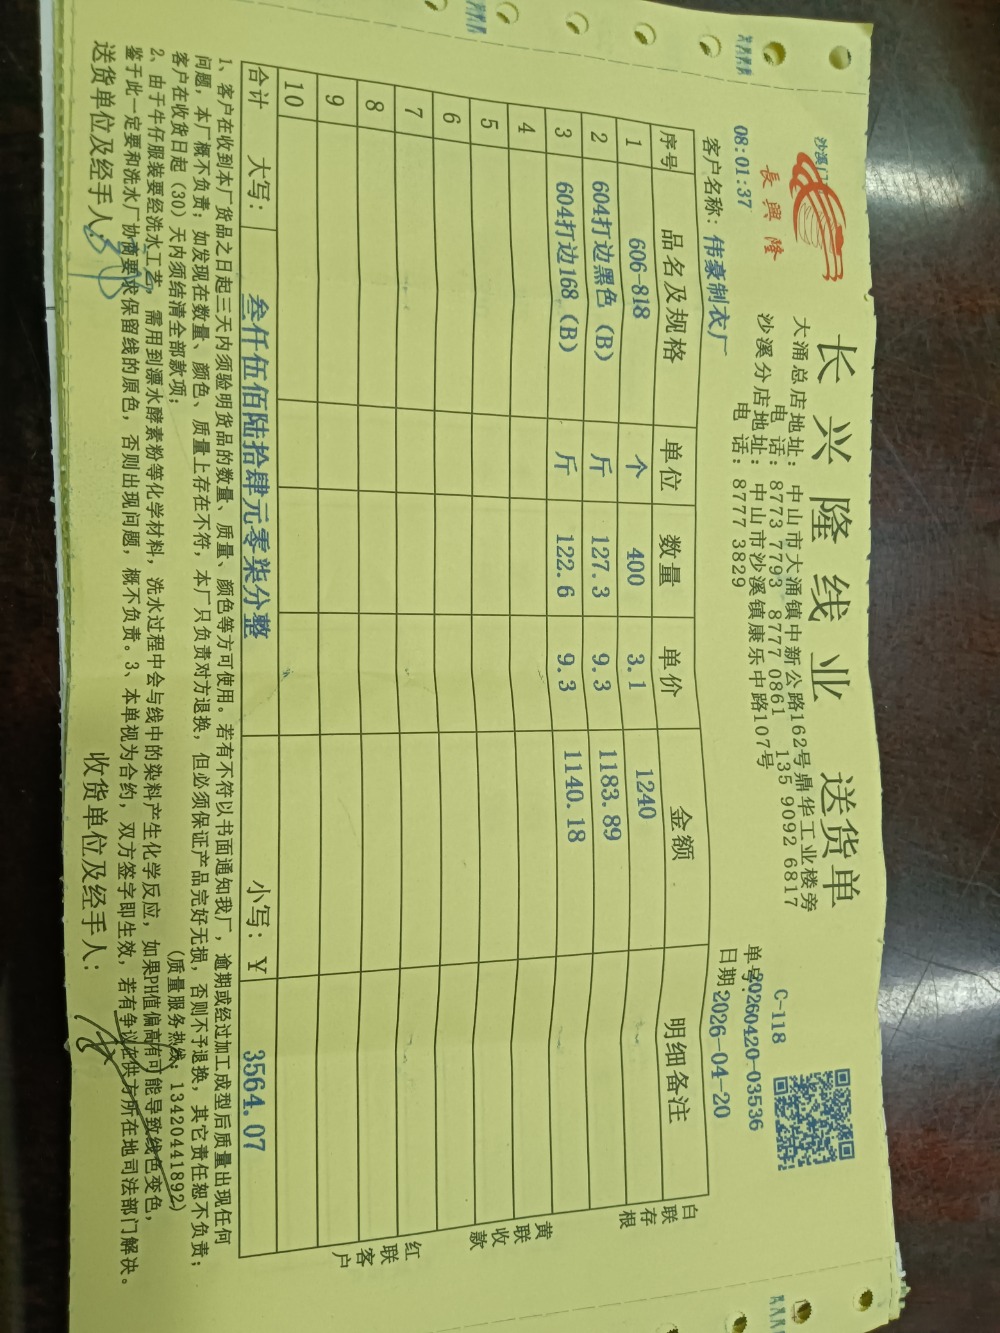 沙溪门
長興隆
长兴隆线业 送货单
大涌总店地址：中山市大涌镇中新公路162号鼎华工业楼旁
电 话：8773 7793 8777 0861 135 9092 6817
沙溪分店地址：中山市沙溪镇康乐中路107号
电 话：8777 3829
C-118
单号:20260420-03536
08:01:37
客户名称：伟豪制衣厂
日期:2026-04-20
序号 品名及规格 单位 数量 单价 金额 明细备注
1 606-818 个 400 3.1 1240
2 604打边黑色（B） 斤 127.3 9.3 1183.89
3 604打边168（B） 斤 122.6 9.3 1140.18
4
5
6
7
8
9
10
合计 大写：叁仟伍佰陆拾肆元零柒分整 小写：￥ 3564.07
白联存根
黄联收款
红联客户
1、客户在收到本厂货品之日起三天内须验明货品的数量、质量、颜色等方可使用。若有不符以书面通知我厂，逾期或经过加工成型后质量出现任何
问题，本厂概不负责；如发现在数量、颜色、质量上存在不符，本厂只负责对方退换，但必须保证产品完好无损，否则不予退换，其它责任恕不负责；
客户在收货日起（30）天内须结清全部款项； （质量服务热线：13420441892）
2、由于牛仔服装要经洗水工艺，需用到漂水酵素粉等化学材料，洗水过程中会与线中的染料产生化学反应，如果PH值偏高有可能导致线色变色，
鉴于此一定要和洗水厂协商要求保留线的原色，否则出现问题，概不负责。3、本单视为合约，双方签字即生效，若有争议在供方所在地司法部门解决。
送货单位及经手人： 收货单位及经手人：